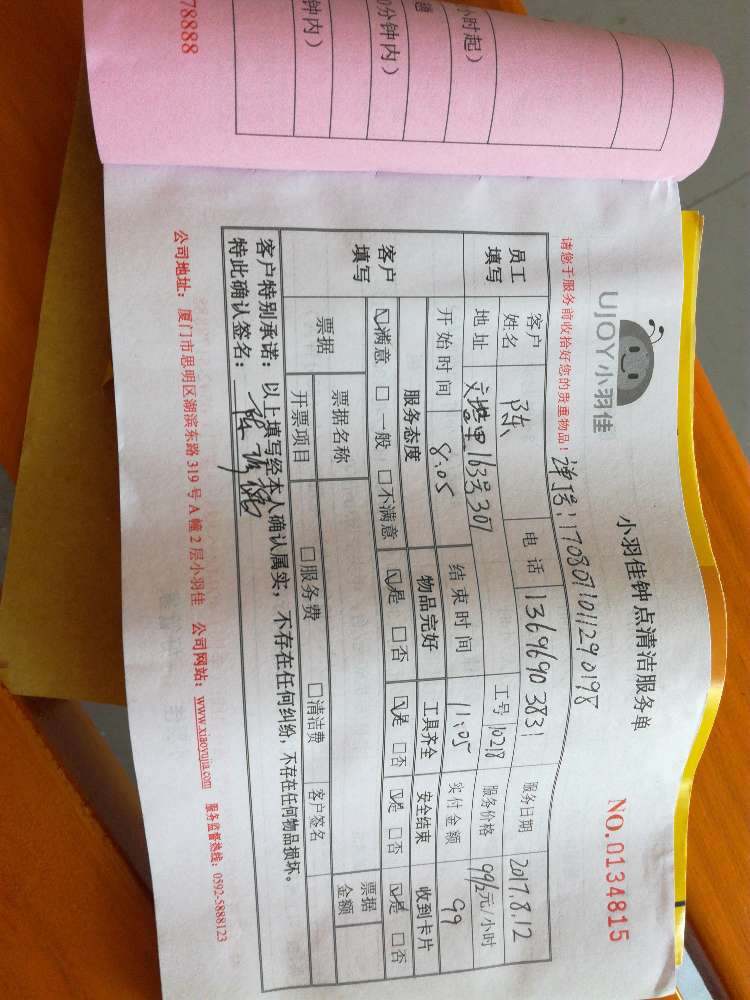 78888
钟内）
小时起）
0分钟内）
UJOY小羽佳
小羽佳钟点清洁服务单
NO.0134815
请您于服务前收拾好您的贵重物品！
170807101129 0198
员工填写
客户姓名 陈 电话 13696903831 服务日期 2017.8.12
地址 文塔里163号307 工号 10218 服务价格 99/2元/小时
客户填写
开始时间 8:05 结束时间 11:05 实付金额 99
服务态度 物品完好 工具齐全 安全结束 收到卡片
☑满意 □一般 □不满意 ☑是 □否 ☑是 □否 ☑是 □否 ☑是 □否
票据 票据名称 票据金额
开票项目 □服务费 □清洁费 客户签名
客户特别承诺：以上填写经本人确认属实，不存在任何纠纷，不存在任何物品损坏。
特此确认签名：
公司地址：厦门市思明区湖滨东路319号A幢2层小羽佳 公司网站：www.xiaoyujia.com 服务监督热线：0592-5888123